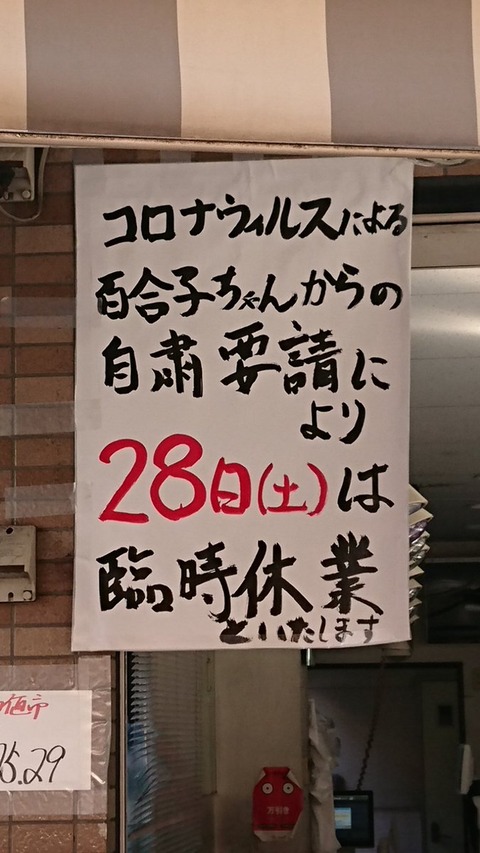 コロナウィルスによる
百合子ちゃんからの
自粛要請に
より
28日(土)は
臨時休業
といたします
値市
.29
万引き